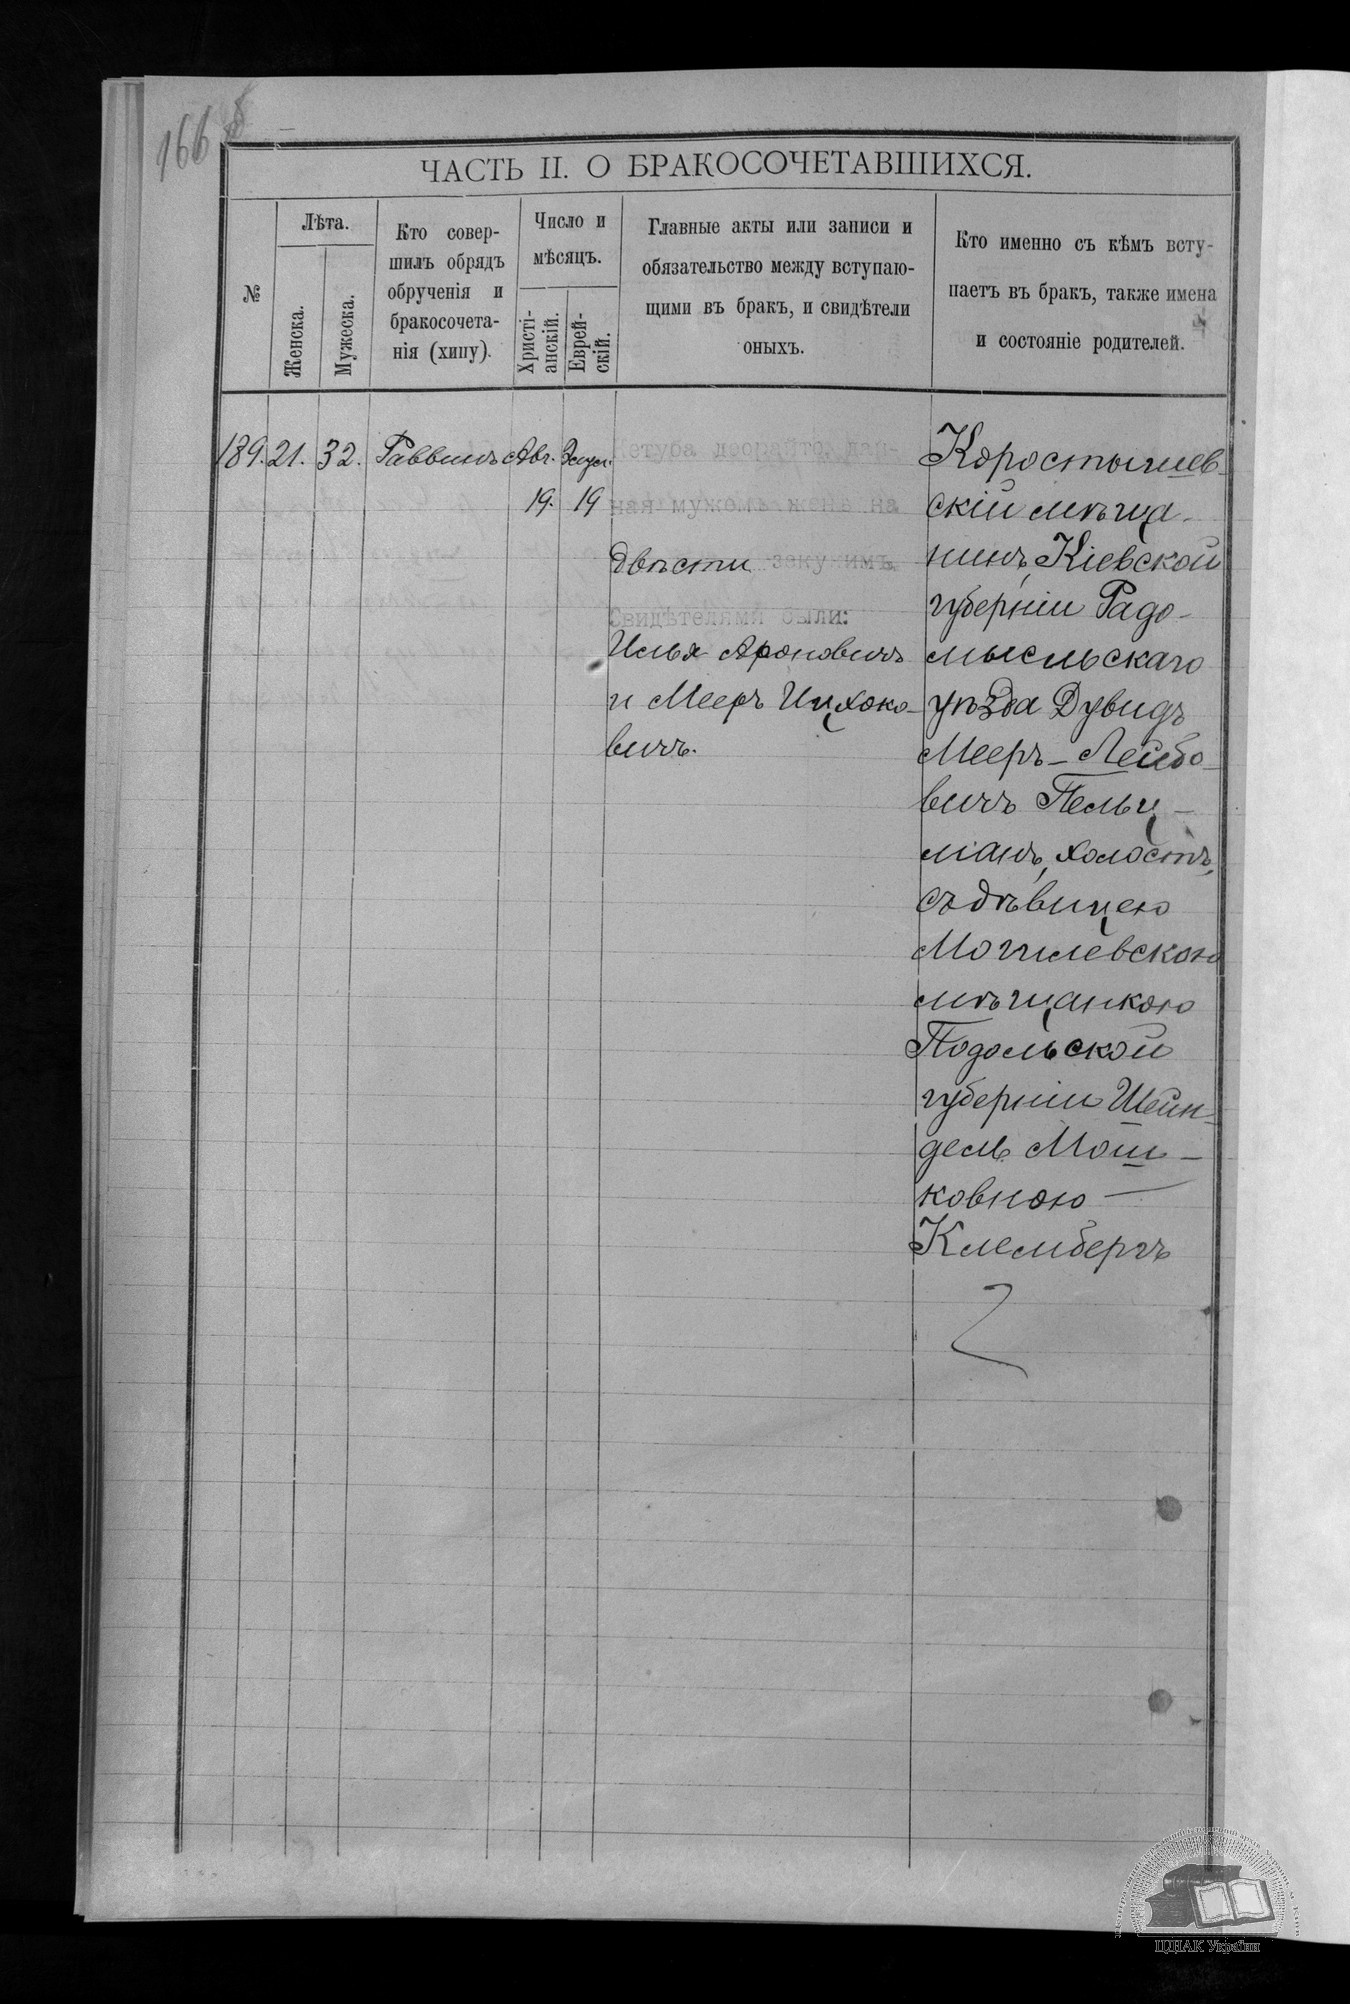 166
ЧАСТЬ II. О БРАКОСОЧЕТАВШИХСЯ.
№
Лѣта.
Женска.
Мужеска.
Кто совер-
шилъ обрядъ
обрученія и
бракосочета-
нія (хипу).
Число и
мѣсяцъ.
Христі-
анскій.
Еврей-
скій.
Главные акты или записи и
обязательство между вступаю-
щими въ бракъ, и свидѣтели
оныхъ.
Кто именно съ кѣмъ всту-
паетъ въ бракъ, также имена
и состояніе родителей.
189.
21.
32.
Раввинъ
Авг.
19.
Элул.
19
Кетуба деорайто, дан-
ная мужемъ женѣ на
двѣсти зекукимъ.
Свидѣтелями были:
Илья Ароновичъ
и Мееръ Ицхоко-
вичъ.
Коростышев-
скій мѣща-
нинъ, Кіевской
губерніи Радо-
мысльскаго
уѣзда Дувидъ
Мееръ-Лейбо-
вичъ Пельц-
манъ, холостъ,
съ дѣвицею
Могилевскою
мѣщанкою
Подольской
губерніи Шейн-
дель Мош-
ковною
Клембергъ
ЦДІАК України